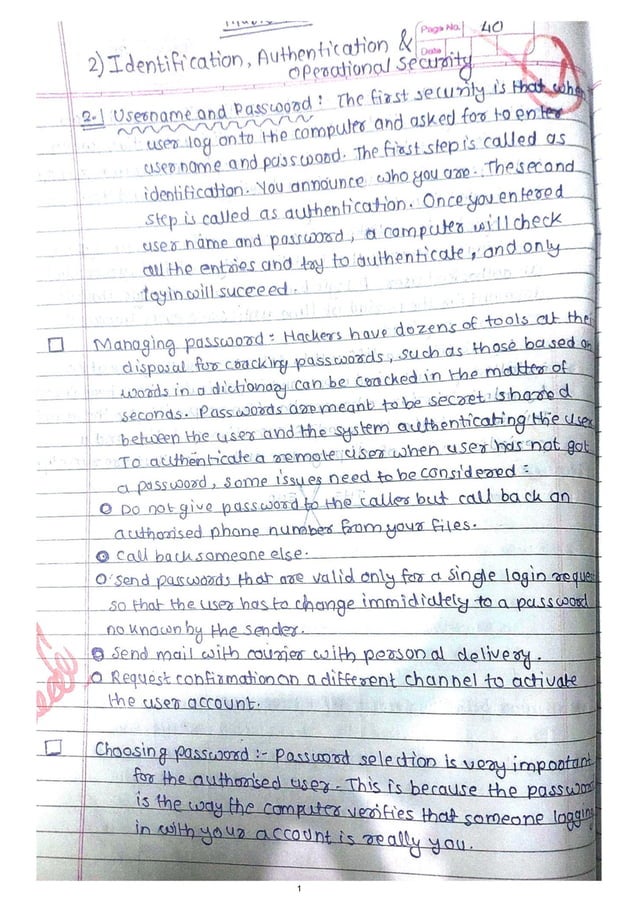 Page No. 40
Date
2) Identification, Authentication &
Operational Security
2.1 Username and Password : The first security is that when
user log onto the computer and asked for to enter
user name and password. The first step is called as
identification. You announce who you are. The second
step is called as authentication. Once you entered
user name and password, a computer will check
all the entries and try to authenticate, and only
will succeed.
Managing password : Hackers have dozens of tools at the
disposal for cracking passwords, such as those based on
words in a dictionary can be cracked in the matter of
seconds. Passwords are meant to be secret shared
between the user and the system authenticating the user
To authenticate a remote user when user has not got
a password, some issues need to be considered :
Do not give password to the caller but call back an
authorised phone number from your files.
call back someone else.
Send passwords that are valid only for a single login reque
so that the user has to change immidiately to a password
no known by the sender.
Send mail with courier with personal delivery.
Request confirmation on a different channel to activate
the user account.
Choosing password :- Password selection is very important
for the authorised user. This is because the passwor
is the way the computer verifies that someone logging
in with your account is really you.
1